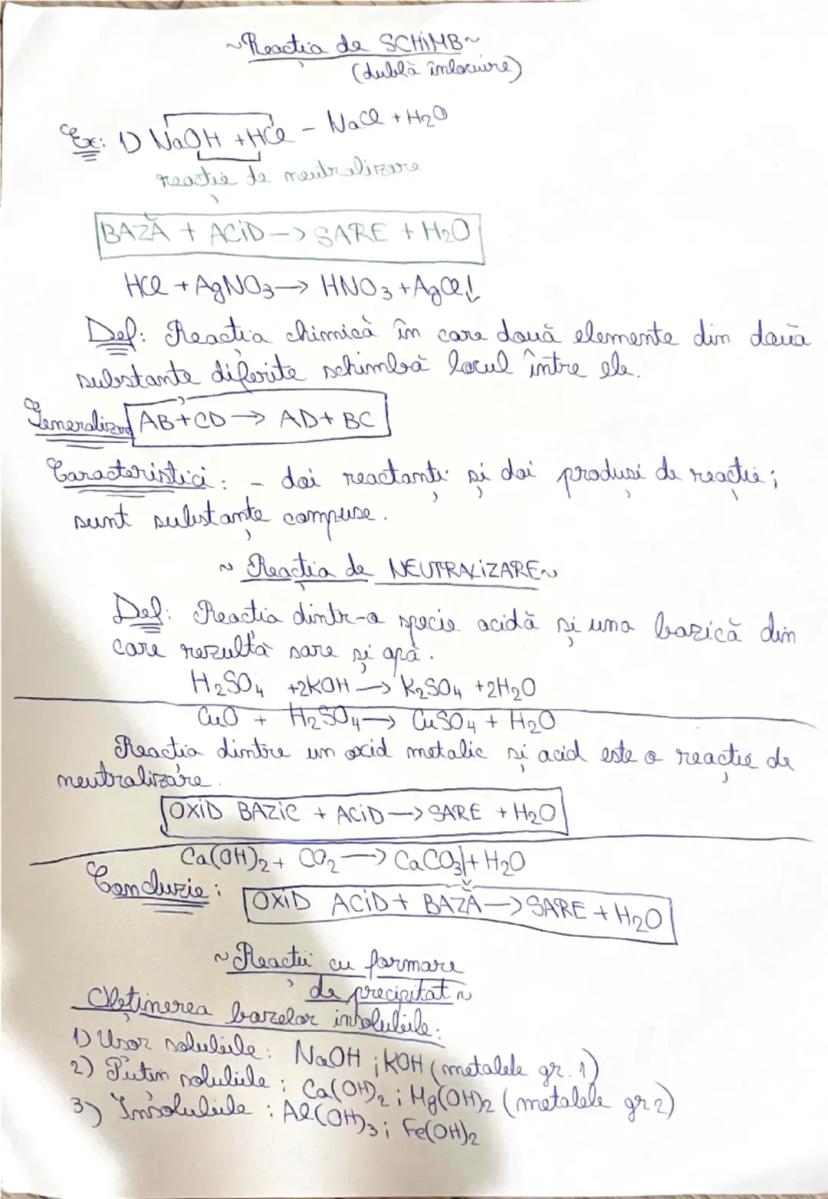 ~Reacția de SCHIMB~
(dublă înlocuire)
Ex: 1) NaOH + HCl - NaCl + H2O
reacție de neutralizare
BAZĂ + ACiD → SARE + H2O
HCl + AgNO3 → HNO3 + AgCl↓
Def: Reacția chimică în care două elemente din două
substanțe diferite schimbă locul între ele.
Generalizod AB + CD → AD + BC
Caracteristici: - doi reactanți și doi produși de reacție;
sunt substanțe compuse.
~ Reacția de NEUTRALiZARE ~
Def: Reacția dintr-o specie acidă și una bazică din
care rezultă sare și apă.
H2SO4 + 2KOH → K2SO4 + 2H2O
CuO + H2SO4 → CuSO4 + H2O
Reacția dintre un oxid metalic și acid este o reacție de
neutralizare.
OXiD BAZiC + ACiD → SARE + H2O
Ca(OH)2 + CO2 → CaCO3↓ + H2O
Concluzie: OXiD ACiD + BAZĂ → SARE + H2O
~Reacții cu formare
de precipitat~
Obținerea bazelor insolubile:
1) Ușor solubile: NaOH ; KOH (metalele gr. 1)
2) Puțin solubile : Ca(OH)2 ; Mg(OH)2 (metalele gr 2)
3) Insolubile : Al(OH)3 ; Fe(OH)2